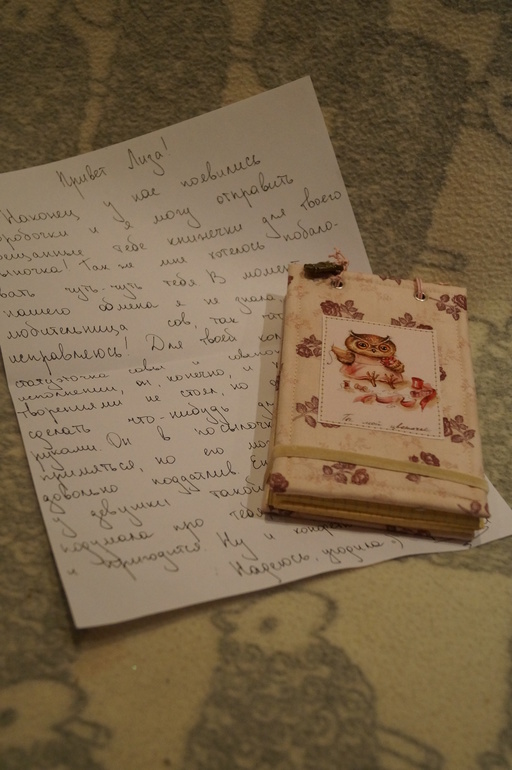 Привет Лиза!
Наконец у нас появились
коробочки и я могу отправить
обещанные тебе книжечки для твоего
сыночка! Так же мне хотелось побало-
вать чуть-чуть тебя. В момент
нашего обмена я не знала
любительница сов, так что
исправляюсь! Для твоей кол
статуэточка совы в
исполнении, он, конечно, и
творениями не стоял, но
сделать что-нибудь
руками. Он в посылочке
примяться, но его мо
довольно податлив. Ещ
у девушки такой
подумала про тебя
и пригодится. Ну и конф
Надеюсь, угодила :)